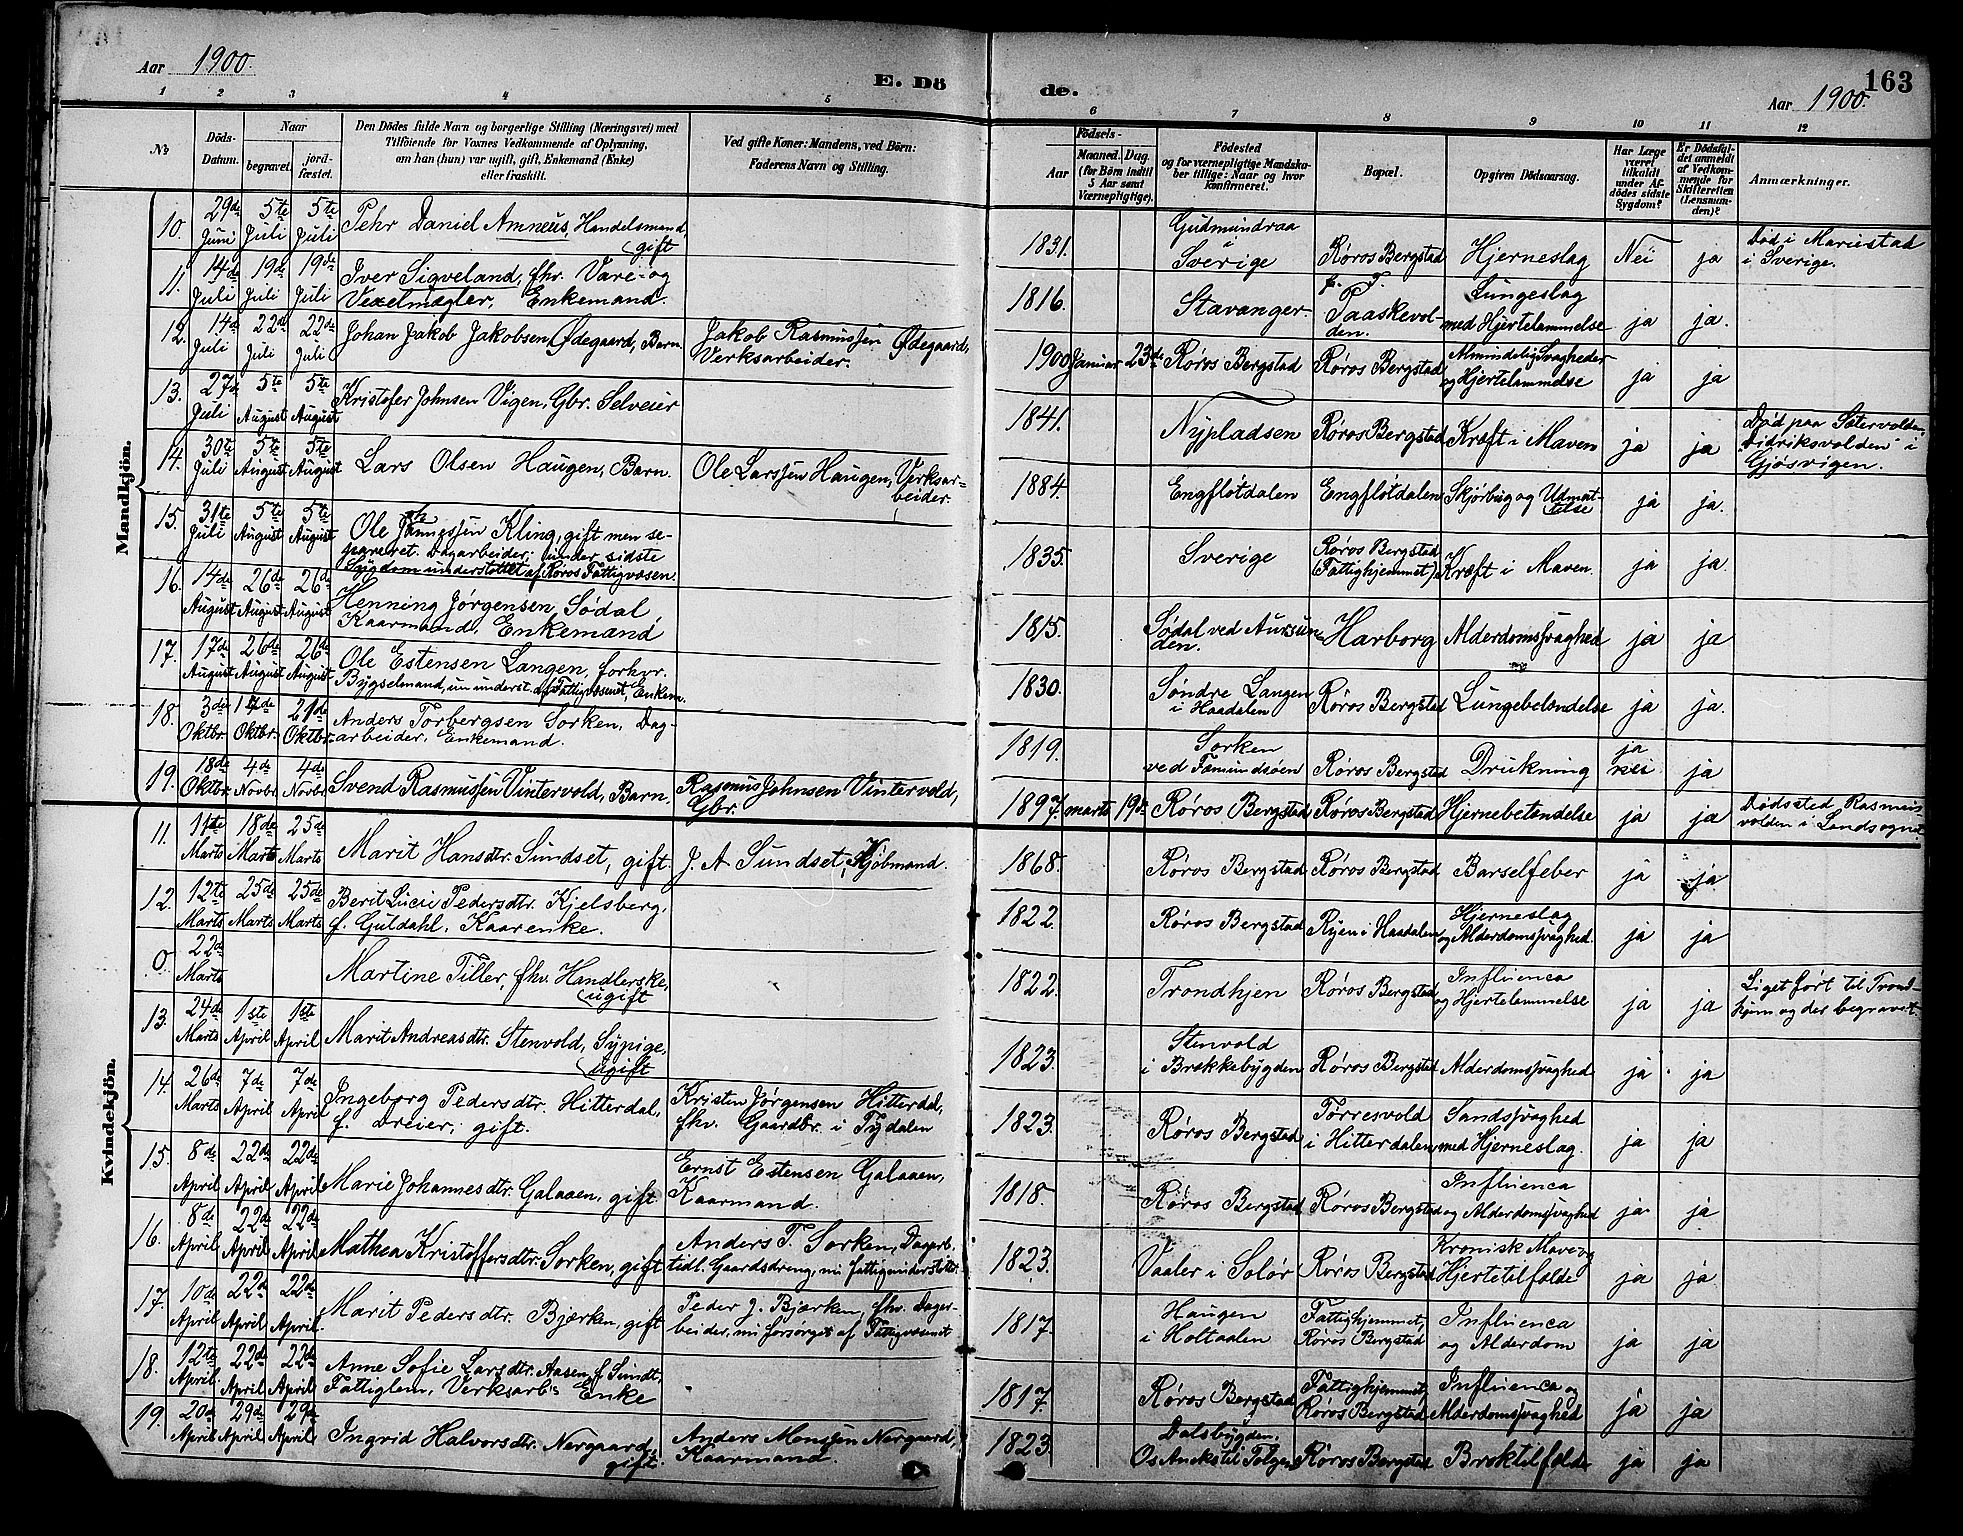 Aar 1900.
E. Dö
de.
163
Aar 1900.
1 2 3 4 5 6 7 8 9 10 11 12
No
Döds-Datum.
Naar
begravet.
jordfæstet.
Den Dödes fulde Navn og borgerlige Stilling (Næringsvei) med
Tilföiende for Voxnes Vedkommende af Oplysning,
om han (hun) var ugift, gift, Enkemand (Enke)
eller fraskilt.
Ved gifte Koner: Mandens, ved Börn:
Faderens Navn og Stilling.
Födsels-
Aar
Maaned. Dag.
(for Börn indtil
5 Aar samt
Værnepligtige).
Födested
og for værnepligtige Mandska-
ber tillige: Naar og hvor
konfirmeret.
Bopæl.
Opgiven Dödsaarsag.
Har Læge
været
tilkaldt
under Af-
dödes sidste
Sygdom?
Er Dödsfal-
det anmeldt
af Vedkom-
mende for
Skifteretten
(Lensman-
den)?
Anmærkninger.
Mandkjön.
10. 29de Juni 5te Juli 5te Juli Pehr Daniel Amneus, Handelsmand, gift 1831. Gudmundraa i Sverige Røros Bergstad Hjerneslag Nei ja Død i Mariestad i Sverige.
11. 14de Juli 19de Juli 19de Juli Iver Sigveland, fhv. Vare- og Vexelmægler, Enkemand. 1816. Stavanger Paaskevolden. Lungeslag med Hjertelammelse ja ja.
12. 14de Juli 22de Juli 22de Juli Johan Jakob Jakobsen Ødegaard, Barn. Jakob Rasmussen Ødegaard, Verksarbeider. 1900 Januar 23de Røros Bergstad Røros Bergstad Almindelig Svaghed og Hjertelammelse ja ja
13. 27de Juli 5te August 5te August Kristofer Johnsen Vigen, Gbr. Selveier 1841. Nypladsen Røros Bergstad Kræft i Maven ja ja Død paa Sætervolden Didriksvolden" i Gjøsvigen.
14. 30te Juli 5te August 5te August Lars Olsen Haugen, Barn. Ole Larssen Haugen, Verksarbeider. 1884. Engfløtdalen Engfløtdalen Skjørbug og Udmattelse ja ja.
15. 31te Juli 5te August 5te August Ole Johannessen Kling, gift men separeret. Dagarbeider; under sidste Sygdom understøttet af Røros Fattigvæsen. 1835. Sverige Røros Bergstad (Fattighjemmet) Kræft i Maven. ja ja.
16. 14de August 26de August 26de August Henning Jørgensen Sødal, Kaarmand, Enkemand 1815. Sødal ved Aursunden. Harborg Alderdomssvaghed ja ja
17. 17de August 26de August 26de August Ole Estensen Langen, forhv. Bygselmand, nu underst. af Fattigvæsenet, Enkem. 1830. Søndre Langen i Haadalen Røros Bergstad Lungebetændelse ja ja.
18. 3de Oktbr. 17de Oktbr. 21de Oktbr. Anders Torbergsen Sorken, Dagarbeider, Enkemand. 1819. Sorken ved Fæmundsøen Røros Bergstad Drukning ja nei ja
19. 18de Oktbr. 4de Novbr. 4de Novbr. Svend Rasmussen Vintervold, Barn. Rasmus Johnsen Vintervold, Gbr. 1897. marts 19de Røros Bergstad Røros Bergstad Hjernebetændelse ja ja Dødssted Rasmusvolden i Landsognet
Kvindekjön.
11. 11te Marts 18de Marts 25de Marts Marit Hansdtr. Sundset, gift J. A. Sundset, Kjøbmand. 1868. Røros Bergstad Røros Bergstad Barselfeber ja ja
12. 12te Marts 25de Marts 25de Marts Berit Lucie Pedersdtr. Kjelsberg, f. Guldahl, Kaarenke. 1822. Røros Bergstad Ryen i Haadalen Hjerneslag og Alderdomssvaghed. ja ja
0. 22de Marts Martine Tiller, fhv. Handlerske, ugift 1822. Trondhjem Røros Bergstad Influenca og Hjertelammelse ja ja Liget ført til Trondhjem og der begravet.
13. 24de Marts 1ste April 1ste April Marit Andreasdtr. Stenvold, Sypige, ugift 1823. Stenvold i Brækkebygden Røros Bergstad Alderdomssvaghed ja ja
14. 26de Marts 7de April 7de April Ingeborg Pedersdtr. Hitterdal, f. Dreier, gift. Kristen Jørgensen Hitterdal, fhv. Gaardbr. i Tydalen 1823. Røros Bergstad Tørresvold i Hitterdalen Sandssvaghed med Hjerneslag. ja ja
15. 8de April 22de April 22de April Marie Johannesdtr. Galaaen, gift Ernst Estensen Galaaen, Kaarmand. 1818. Røros Bergstad Røros Bergstad Influenca og Alderdomssvaghed ja ja
16. 8de April 22de April 22de April Mathea Kristoffersdtr. Sorken, gift Anders T. Sorken, Dagarb. tidl. Gaardsdreng, nu fattigunderstøttet. 1823. Vaaler i Solør Røros Bergstad Kronisk Mave og Hjertetilfælde ja ja
17. 10de April 22de April 22de April Marit Pedersdtr. Bjørken, gift Peder J. Bjørken, fhv. Dagarbeider, nu forsørget af Fattigvæsenet 1817. Haugen i Holtaalen Fattighjemmet, Røros Bergstad Influenca og Alderdom ja ja
18. 12te April 22de April 22de April Anne Sofie Larsdtr. Aasen, f. Sundt, Fattiglem, Verksarb's Enke 1817. Røros Bergstad Fattighjemmet, Røros Bergstad Influenca og Alderdomssvaghed ja ja
19. 20de April 29de April 29de April Ingrid Halvorsdtr. Nergaard, gift. Anders Monssen Nergaard, Kaarmand. 1823. Dalsbygden, Os Aneks til Tolgen Røros Bergstad Broktilfælde ja ja